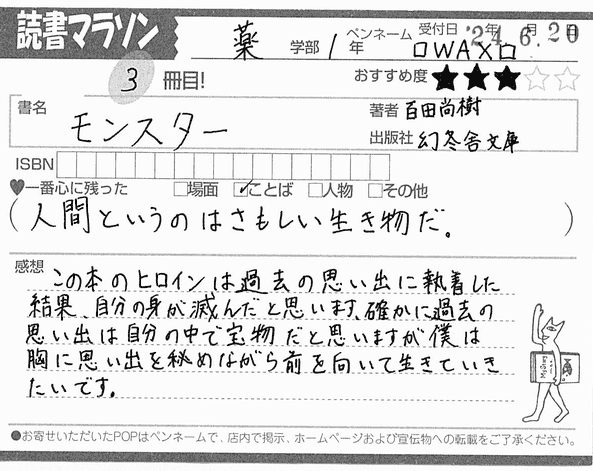 読書マラソン
薬 学部 1 年 ペンネーム □WAX□
受付日 '24年 6月 20日
3 冊目!
おすすめ度 ★★★☆☆
書名 モンスター
著者 百田尚樹
出版社 幻冬舎文庫
ISBN
♥一番心に残った □場面 ☑ことば □人物 □その他
(人間というのはさもしい生き物だ。)
感想
この本のヒロインは過去の思い出に執着した
結果、自分の身が滅んだと思います。確かに過去の
思い出は自分の中で宝物だと思いますが僕は
胸に思い出を秘めながら前を向いて生きていき
たいです。
●お寄せいただいたPOPはペンネームで、店内で掲示、ホームページおよび宣伝物への転載をご了承ください。